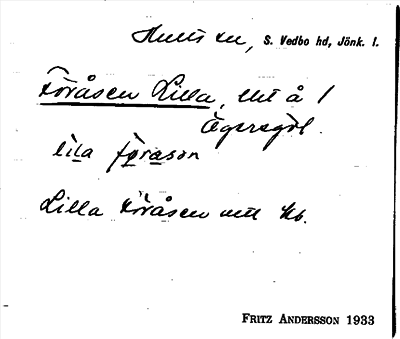 Hults sn, S. Vedbo hd, Jönk. l.
Föråsen Lilla, litt å 1
Ägersgöl.
lila förason
Lilla Föråsen utt kb.
FRITZ ANDERSSON 1933